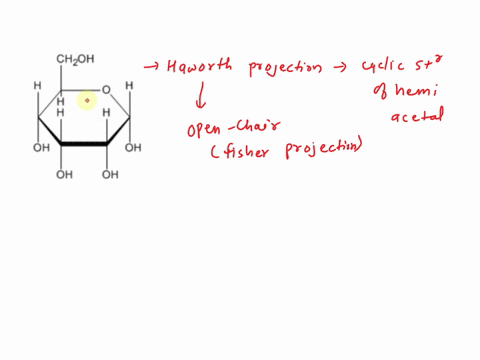 CH₂OH
→ Haworth projection → cyclic strʳ
of hemi
acetal
↓
open-chair
(fisher projection)
H
O
H
H
H
H
OH
OH
OH
OH